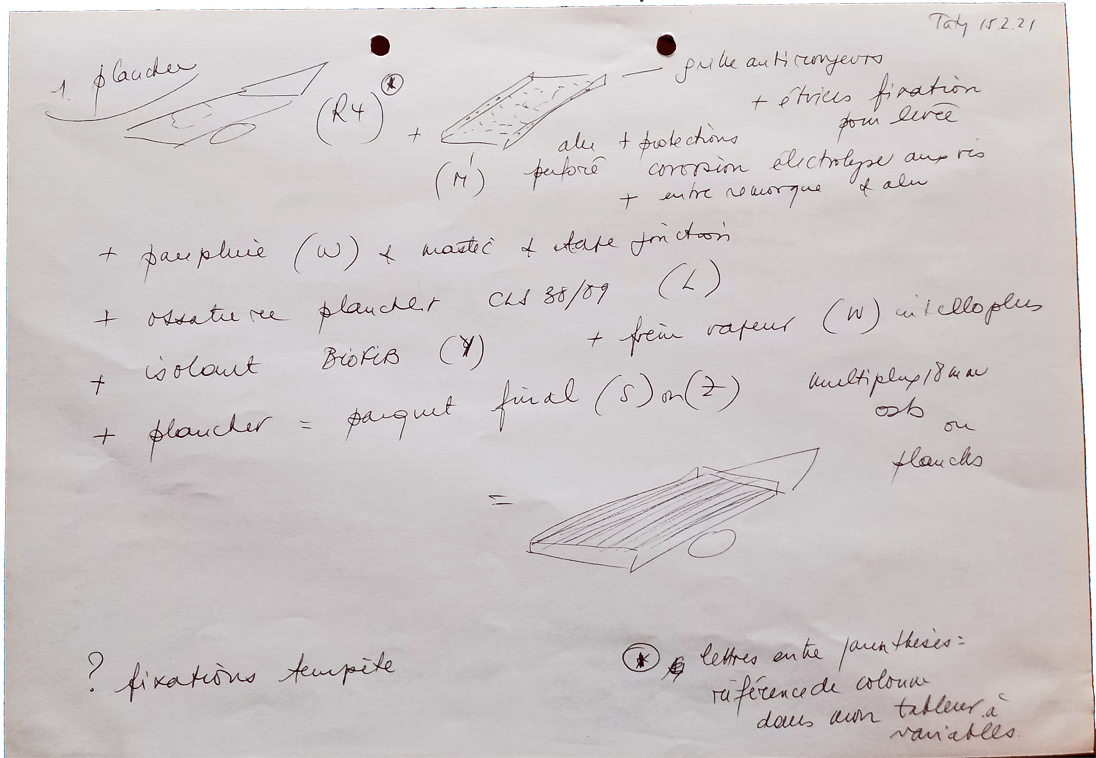 Taty 15.2.21
1. plancher
(R4)
+
grille antirongeurs
+ étriers fixation
pour levée
(M)
alu + protections
perforé corrosion électrolyse aux vis
+ entre remorque & alu
+ parepluie (W) & mastic & tape jonction
+ ossature plancher CLS 38/89 (L)
+ isolant BioFiB (Y) + frein vapeur (W) intelloplus
+ plancher = parquet final (S) ou (Z)
multiplex 18mm
osb
ou
planches
=
? fixations tempête
lettres entre parenthèses =
référence de colonne
dans mon tableur à
variables.